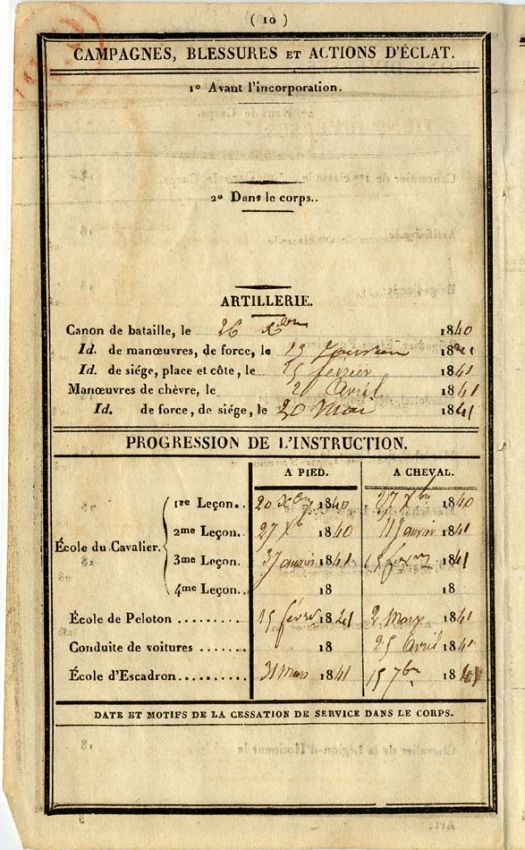 ( 10 )
CAMPAGNES, BLESSURES ET ACTIONS D'ÉCLAT.
1º Avant l'incorporation.
2º Dans le corps..
ARTILLERIE.
Canon de bataille, le 26 Xbre 1840
Id. de manœuvres, de force, le 19 Janvier 1841
Id. de siége, place et côte, le 15 février 1841
Manœuvres de chèvre, le 20 Avril 1841
Id. de force, de siége, le 20 Mai 1841
PROGRESSION DE L'INSTRUCTION.
A PIED. A CHEVAL.
École du Cavalier.
1re Leçon.. 20 Xbre 1840 27 Xbre 1840
2me Leçon. 27 Xb 1840 11 Janvier 1841
3me Leçon. 3 Janvier 1841 15 1841
4me Leçon. 18 18
École de Peloton ......... 15 févr 1841 2 Mars 1841
Conduite de voitures ....... 18 25 Avril 1841
École d'Escadron.......... 31 Mars 1841 15 7bre 1841
DATE ET MOTIFS DE LA CESSATION DE SERVICE DANS LE CORPS.